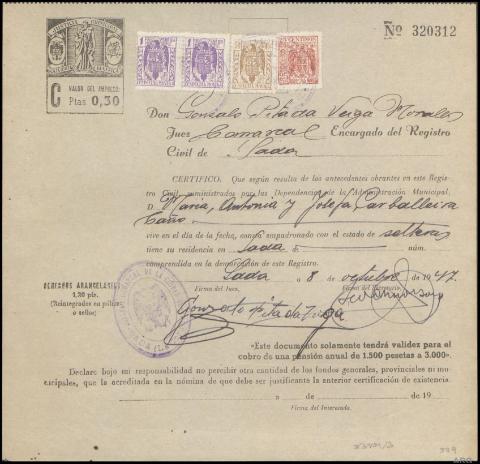 Nº 320312
C VALOR DEL IMPRESO:
Ptas 0,30
Don Gonzalo Pita da Veiga Morales
Juez Comarcal Encargado del Registro
Civil de Sada
CERTIFICO. Que según resulta de los antecedentes obrantes en este Regis-
tro Civil, suministrados por las Dependencias de la Administración Municipal,
D. María, Antonia y Josefa Carballeira
Caño
vive en el día de la fecha, consta empadronado con el estado de solteras
tiene su residencia en Sada núm.
comprendida en la demarcación de este Registro.
Sada a 8 de octubre de 1947.
Firma del Juez. Firma del Secretario.
DERECHOS ARANCELARIOS
(Reintegrados en póliza
o sello)
Gonzalo Pita da Veiga
«Este documento solamente tendrá validez para el
cobro de una pensión anual de 1.500 pesetas a 3.000».
Declaro bajo mi responsabilidad no percibir otra cantidad de los fondos generales, provinciales ni mu-
nicipales, que la acreditada en la nómina de que debe ser justificante la anterior certificación de existencia.
a de de 19
Firma del Interesado.